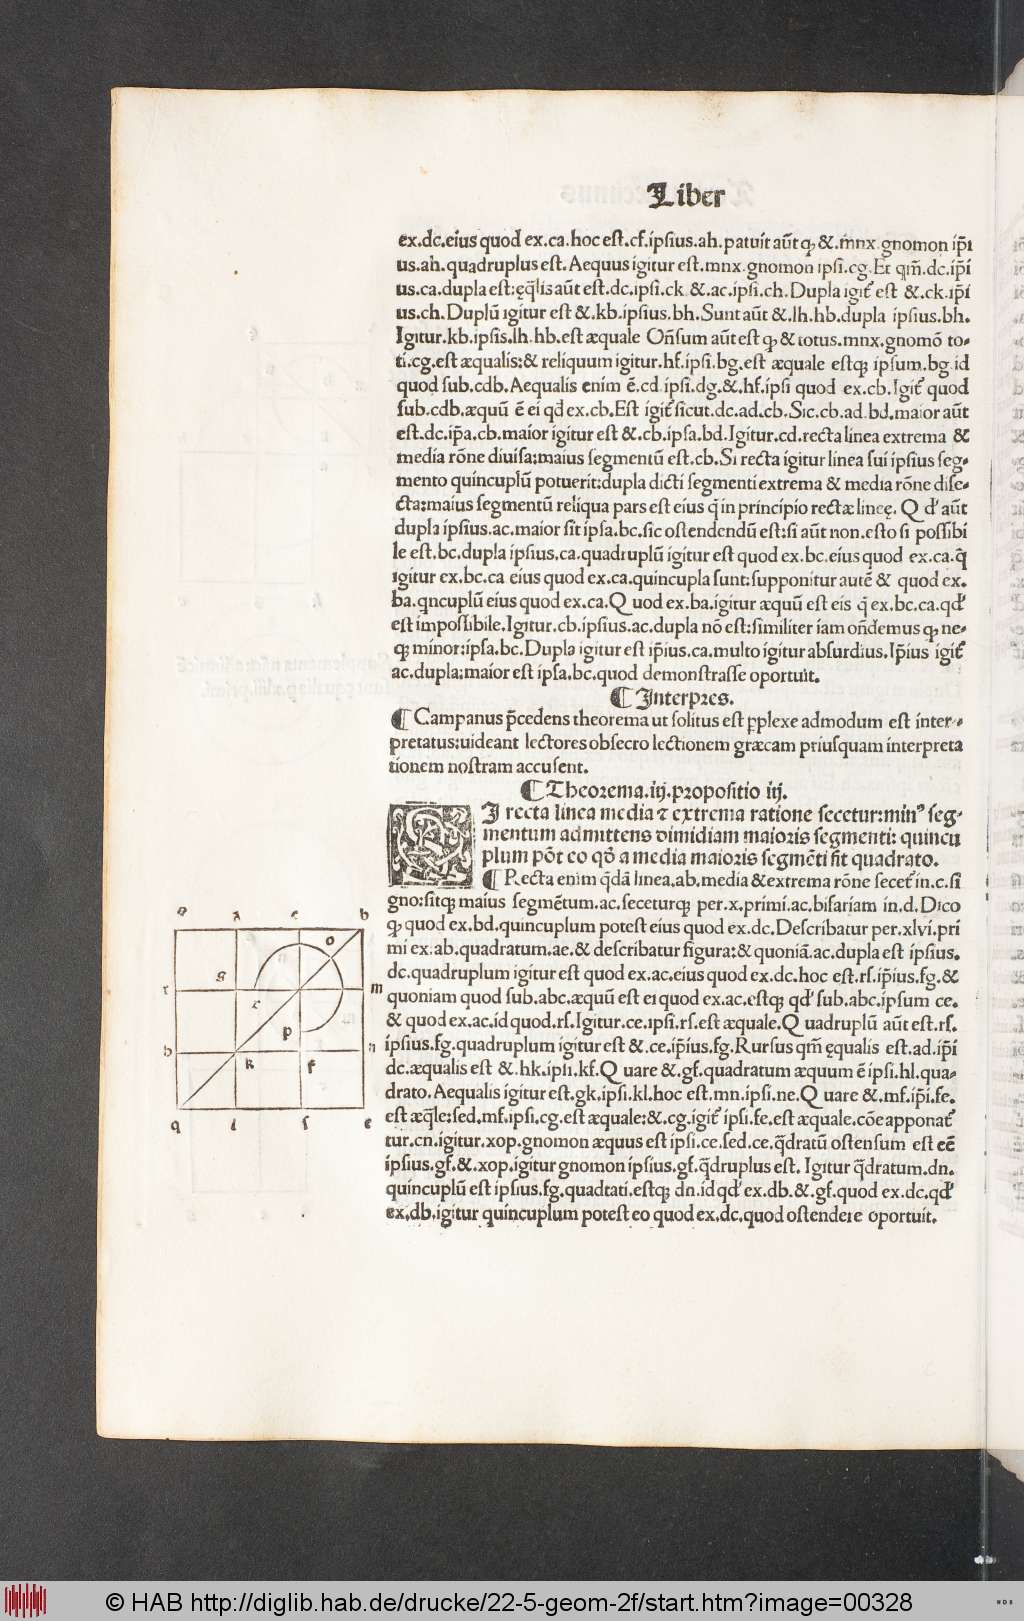 Liber
ex.dc.eius quod ex.ca.hoc est.cf.ipsius.ah.patuit aūt ꝙ &.mnx.gnomon ip̄i
us.ah.quadruplus est.Aequus igitur est.mnx.gnomon ipsi.cg.Et qm̄.dc.ip̄i
us.ca.dupla est:ęq̄lis aūt est.dc.ipsi.ck.& .ac.ipsi.ch.Dupla igit᷑ est &.ck.ip̄i
us.ch.Duplū igitur est &.kb.ipsius.bh.Sunt aūt &.lh.hb.dupla ipsius.bh.
Igitur.kb.ipsis.lh.hb.est æquale Oñsum aūt est ꝙ & totus.mnx.gnomō to-
ti.cg.est æqualis:& reliquum igitur.hf.ipsi.bg.est æquale estqꝫ ipsum.bg.id
quod sub.cdb.Aequalis enim ē.cd.ipsi.dg.&.hf.ipsi quod ex.cb.Igit᷑ quod
sub.cdb.æquū ē ei qd̄ ex.cb.Est igit᷑ sicut.dc.ad.cb.Sic.cb.ad.bd.maior aūt
est.dc.ip̄a.cb.maior igitur est &.cb.ipsa.bd.Igitur.cd.recta linea extrema &
media rōne diuisa:maius segmentū est.cb.Si recta igitur linea sui ipsius seg-
mento quincuplū potuerit:dupla dicti segmenti extrema & media rōne dise-
cta:maius segmentū reliqua pars est eius q̄ in principio rectæ lineę. Q d' aūt
dupla ipsius.ac.maior sit ipsa.bc.sic ostendendū est:si aūt non.esto si possibi
le est.bc.dupla ipsius.ca.quadruplū igitur est quod ex.bc.eius quod ex.ca.q̄
igitur ex.bc.ca eius quod ex.ca.quincupla sunt:supponitur autē & quod ex.
ba.qncuplū eius quod ex.ca.Q uod ex.ba.igitur æquū est eis q̄ ex.bc.ca.qd'
est impossibile.Igitur.cb.ipsius.ac.dupla nō est:similiter iam oñdemus ꝙ ne-
qꝫ minor:ipsa.bc.Dupla igitur est ip̄ius.ca.multo igitur absurdius.Ip̄ius igit᷑
ac.dupla:maior est ipsa.bc.quod demonstrasse oportuit.
¶ Interpres.
¶ Campanus p̄cedens theorema ut solitus est ꝑplexe admodum est inter-
pretatus:uideant lectores obsecro lectionem græcam priusquam interpreta
tionem nostram accusent.
¶ Theorema.iij.propositio iij.
SI recta linea media ⁊ extrema ratione secetur:minꝰ seg-
mentum admittens dimidiam maioris segmenti: quincu
plum pōt eo qd̄ a media maioris segmēti fit quadrato.
¶ Recta enim q̄dā linea.ab.media & extrema rōne secet᷑ in.c.si
gno:sitqꝫ maius segmētum.ac.seceturqꝫ per.x.primi.ac.bifariam in.d.Dico
ꝙ quod ex.bd.quincuplum potest eius quod ex.dc.Describatur per.xlvi.pri
mi ex.ab.quadratum.ae.& describatur figura:& quoniā.ac.dupla est ipsius.
dc.quadruplum igitur est quod ex.ac.eius quod ex.dc.hoc est.rs.ip̄ius.fg.&
quoniam quod sub.abc.æquū est ei quod ex.ac.estqꝫ qd' sub.abc.ipsum ce.
& quod ex.ac.id quod.rs.Igitur.ce.ipsi.rs.est æquale.Q uadruplū aūt est.rs.
ipsius.fg.quadruplum igitur est &.ce.ip̄ius.fg.Rursus qm̄ ęqualis est.ad.ip̄i
dc.æqualis est &.hk.ipsi.kf.Q uare &.gf.quadratum æquum ē ipsi.hl.qua-
drato.Aequalis igitur est.gk.ipsi.kl.hoc est.mn.ipsi.ne.Q uare &.mf.ip̄i.fe.
est æq̄le:sed.mf.ipsi.cg.est æquale:&.cg.igit᷑ ipsi.fe.est æquale.cōe apponat᷑
tur.cn.igitur.xop.gnomon æquus est ipsi.ce.sed.ce.q̄dratū ostensum est eē
ipsius.gf.&.xop.igitur gnomon ipsius.gf.q̄druplus est. Igitur q̄dratum.dn.
quincuplū est ipsius.fg.quadrati.estqꝫ dn.id qd' ex.db.&.gf.quod ex.dc.qd'
ex.db.igitur quincuplum potest eo quod ex.dc.quod ostendere oportuit.
a d c b
o
g
r m
x
p
h n
k f
q l s e
© HAB http://diglib.hab.de/drucke/22-5-geom-2f/start.htm?image=00328